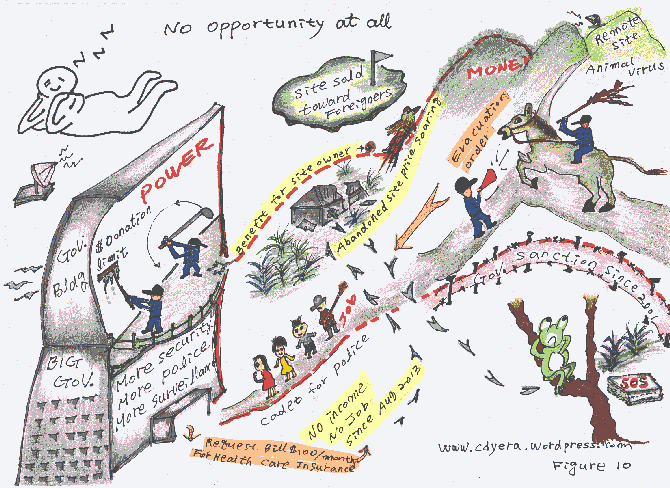 No opportunity at all
z z z
Site sold
toward
Foreigners
MONEY
Remote
Site
Animal
Virus
POWER
Evacuation
order
Benefit for site owner
Abandoned site price soaring
$ Donation
limit
Gov.
Bldg
Gov. Sanction Since
BIG
GOV.
More security
More police
More
JOY
Cadet for police
NO income
No Job
Since Aug. 2013
SOS
Request Bill $100/month
For Health Care Insurance
www.cdyera.wordpress.com
Figure 10